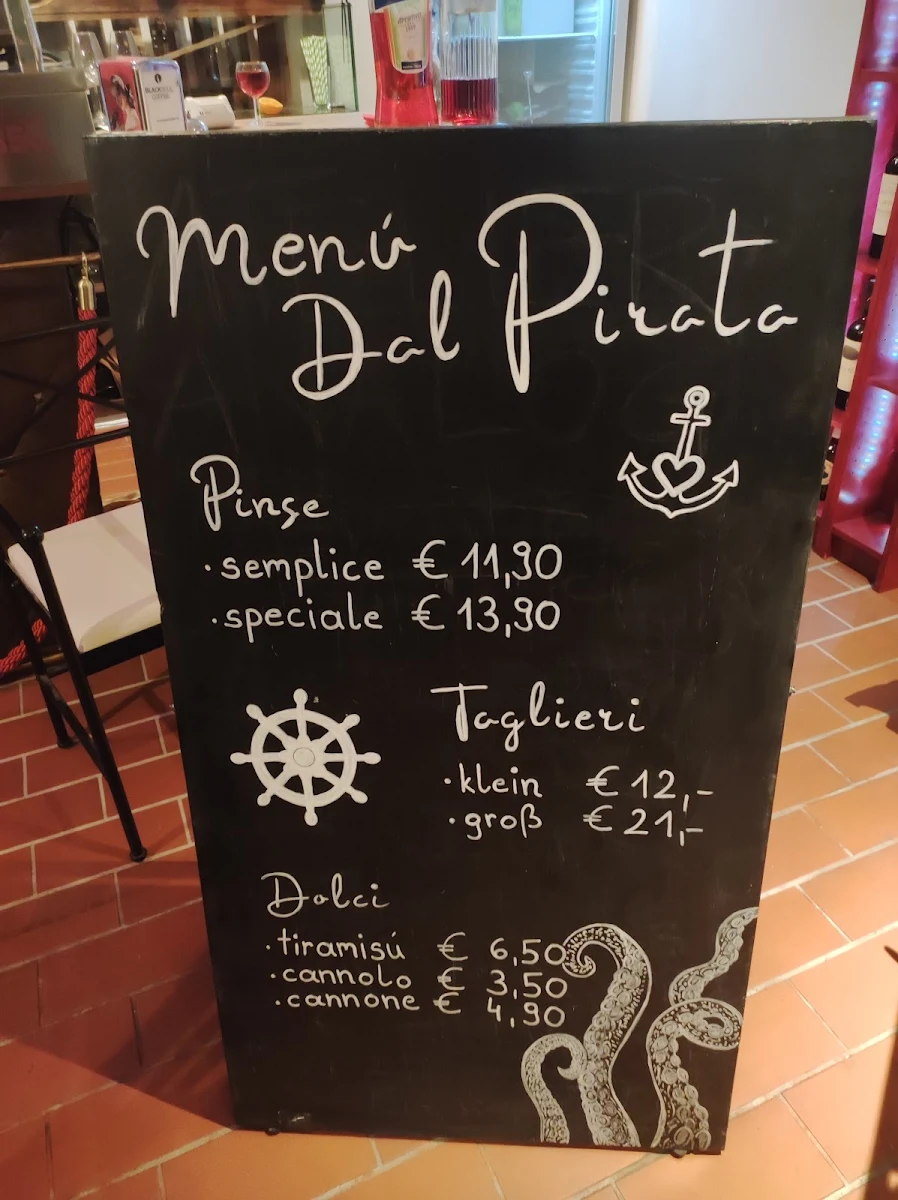 Menú
Dal Pirata
Pinse
·semplice € 11,90
·speciale € 13,90
Taglieri
·klein € 12,-
·groß € 21,-
Dolci
·tiramisú € 6,50
·cannolo € 3,50
·cannone € 4,90